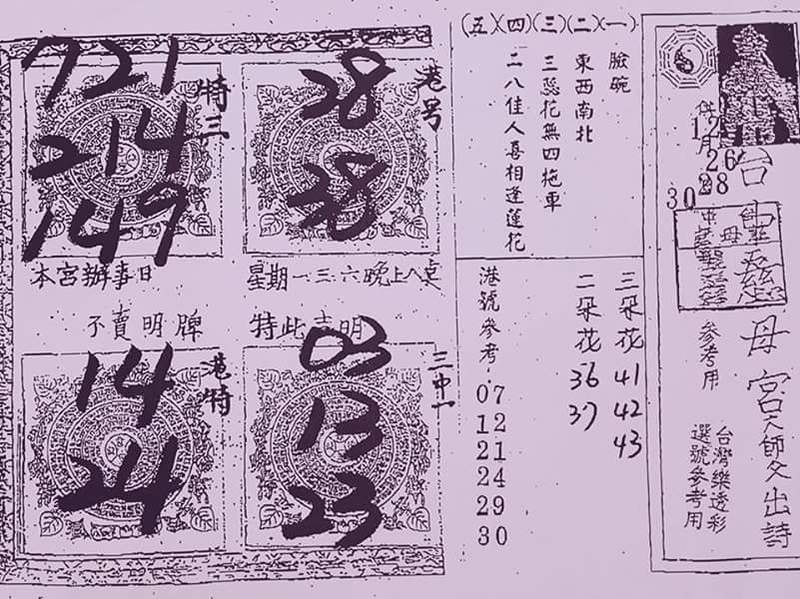 台中慈母宮天師父出詩
供
12
月
26
28
30
參考用
台灣樂透彩
選號參考用
(五)(四)(三)(二)(一)
臉碗
東西南北
三蕊花無四拖車
二八佳人喜相逢蓮花
三朵花 41 42 43
二朵花 36 37
港號參考 07 12 21 24 29 30
721
214
149
特三
28
38
港号
本宮辦事日
星期一三六晚上八点
不賣明牌
特此声明
14
24
港特
03
13
23
三中一